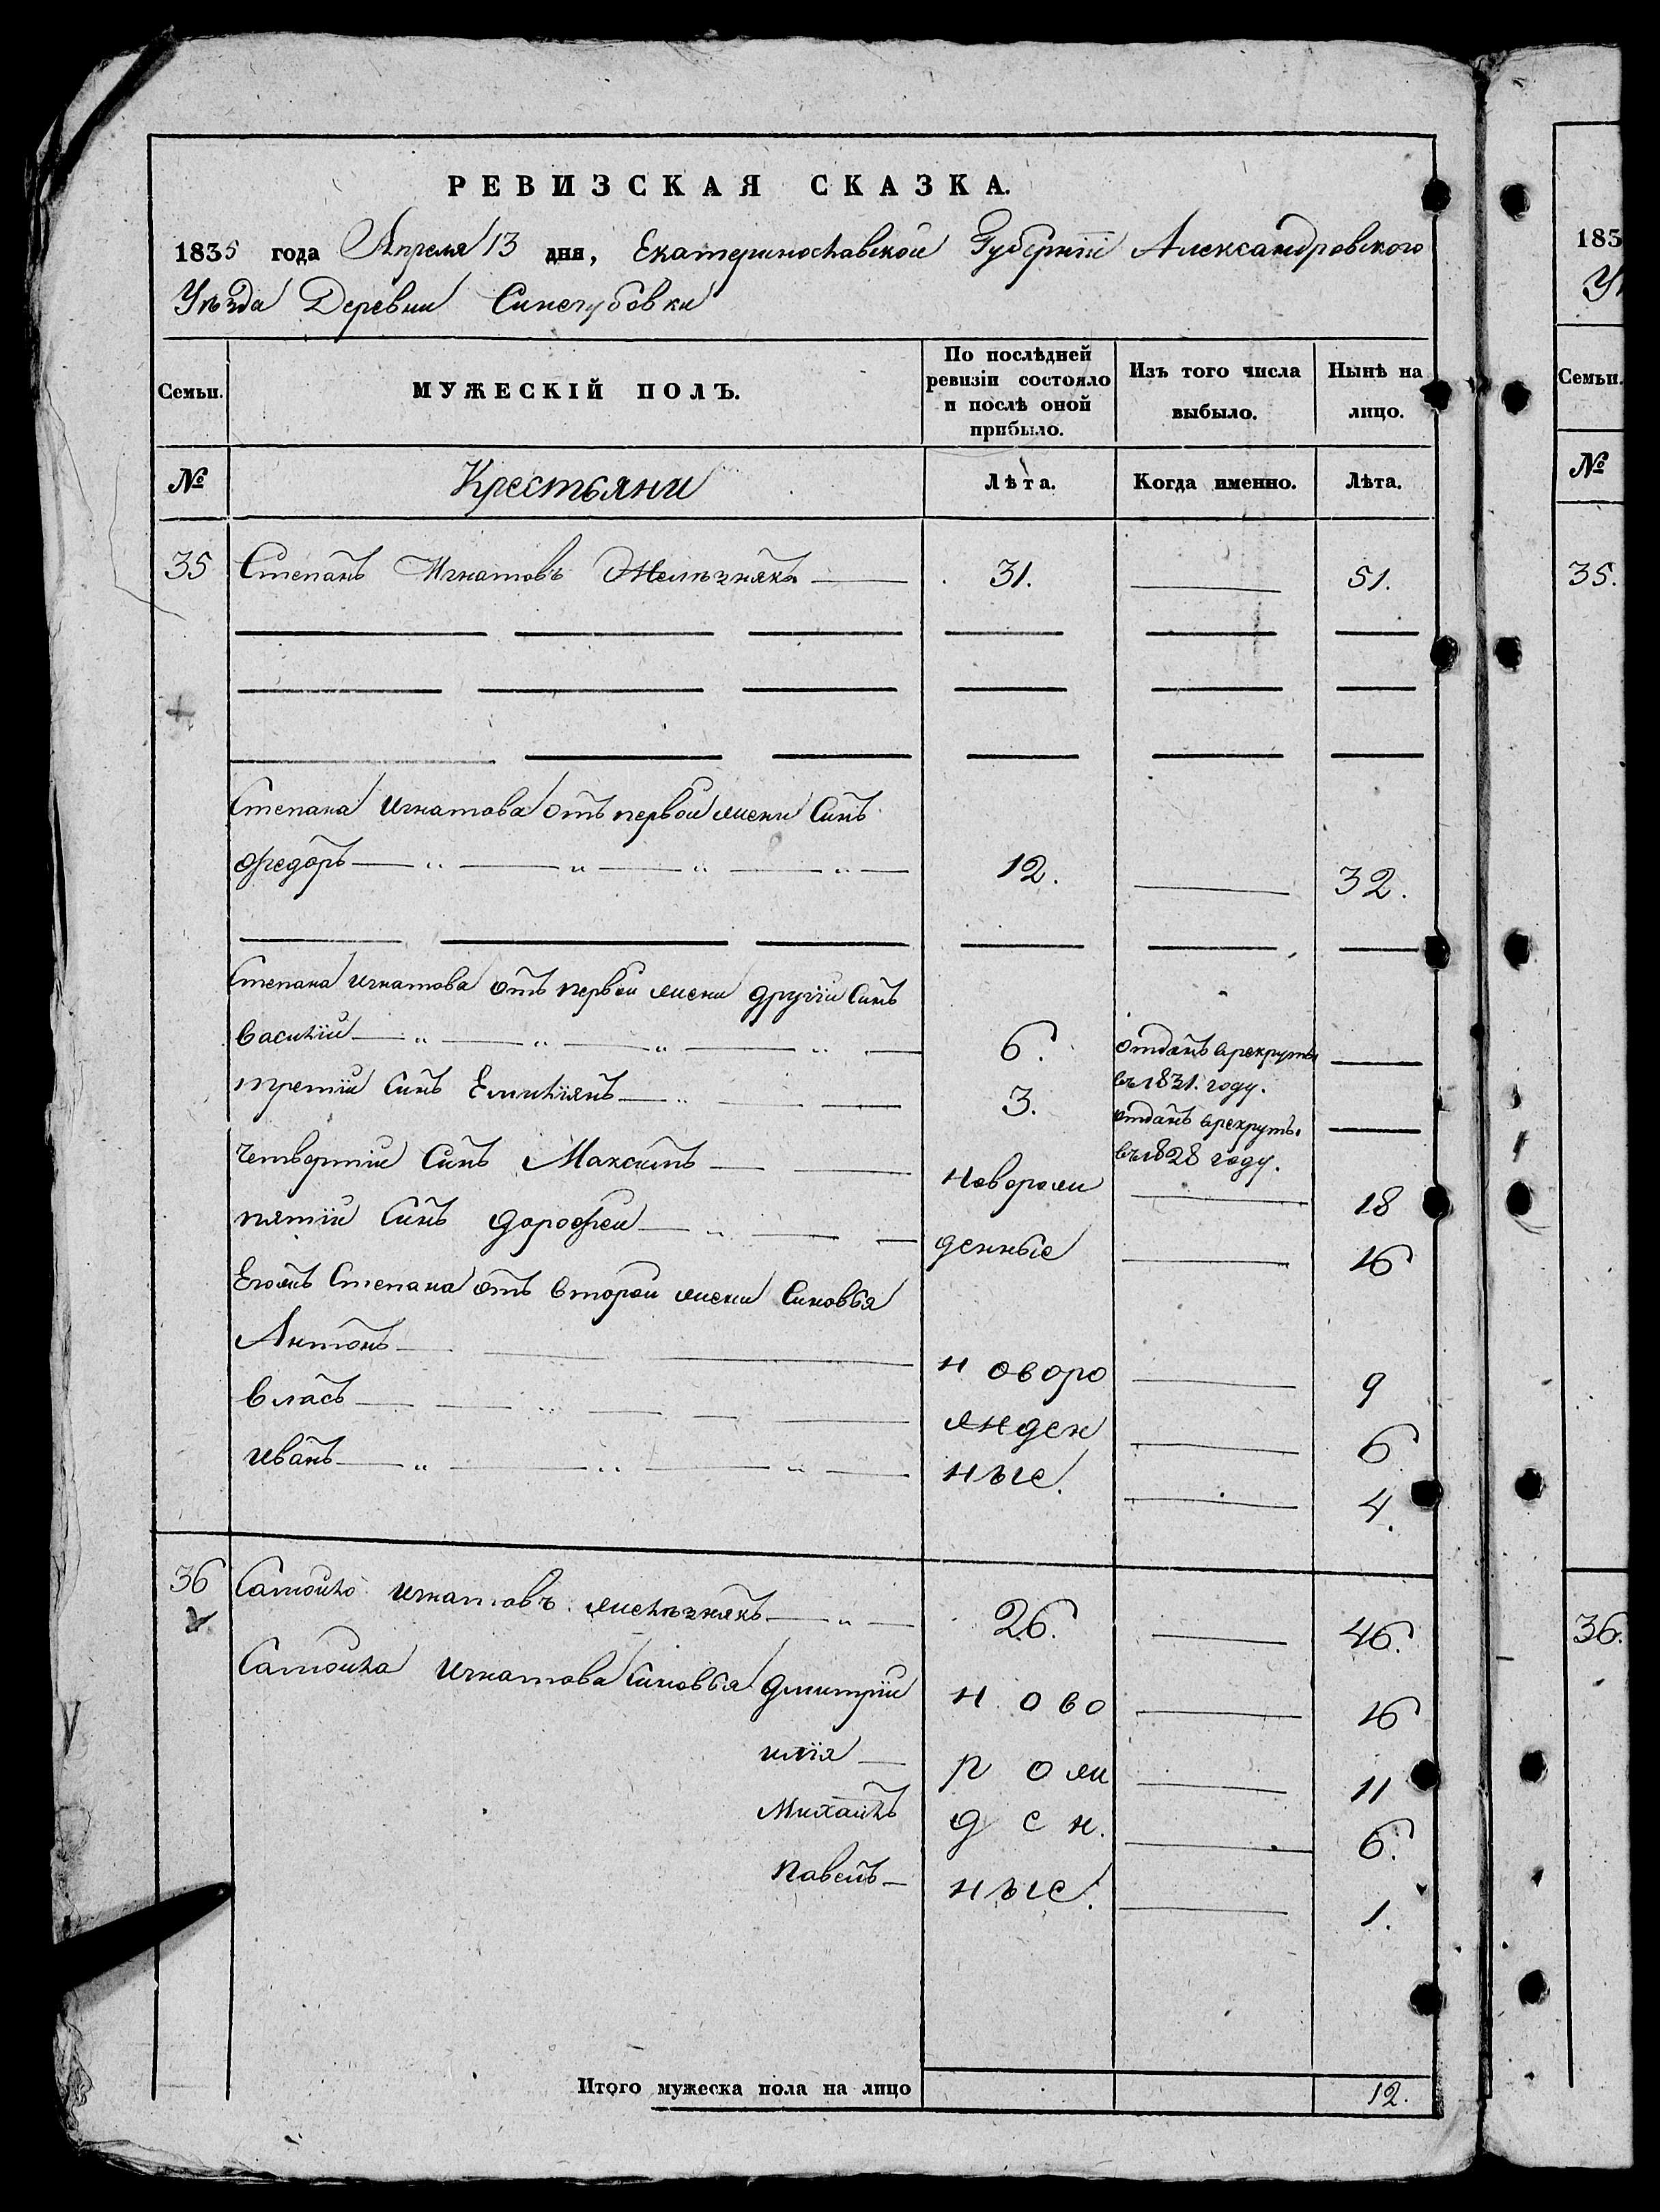 РЕВИЗСКАЯ СКАЗКА.
1835 года Апреля 13 дня, Екатеринославской Губернїи Александровского
Уѣзда Деревни Синегубовки
Семьи. МУЖЕСКІЙ ПОЛЪ. По послѣдней ревизіи состояло и послѣ оной прибыло. Изъ того числа выбыло. Нынѣ на лицо.
№ Крестьяни Лѣта. Когда именно. Лѣта.
35 Степанъ Игнатовъ Желѣзнякъ 31. 51.
Степана Игнатова отъ первой жени Синъ
Федоръ 12. 32.
Степана Игнатова отъ первой жени другій Синъ
Василий 6. отданъ врекруты
въ 1831. году.
третїй Синъ Емилїянъ 3. отданъ врекруты
въ 1828 году.
четвертїй Синъ Максимъ новорож 18
пятїй Синъ Дорофей денные 16
Егожъ Степана отъ второй жени Синовья
Антонъ новоро 9
Власъ жден 6
Иванъ ные. 4.
36 Самойло Игнатовъ желѣзнякъ 26. 46.
Самойла Игнатова Синовья Дмитрїй ново 16
илїя рож 11
Михайлъ ден. 6.
Павелъ ные. 1.
Итого мужеска пола на лицо 12.
183
Семьи.
№
35.
36.